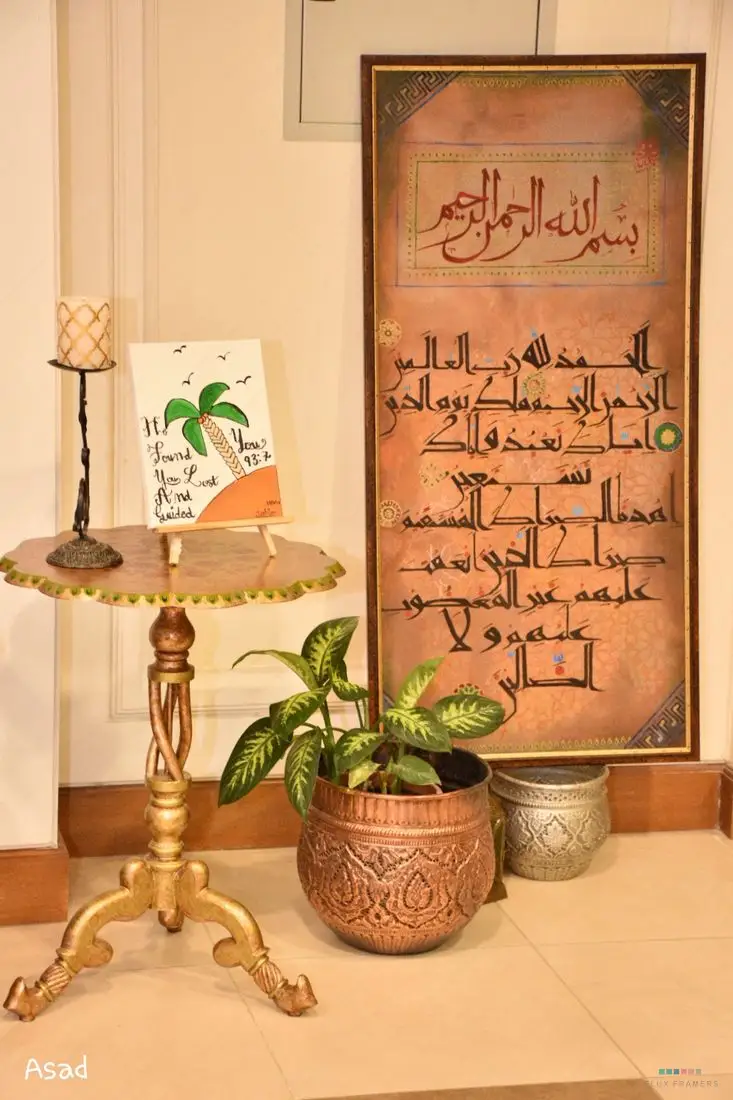 بسم الله الرحمن الرحيم
الحمد لله رب العالمين
الرحمن الرحيم ملك يوم الدين
اياك نعبد و اياك
نستعين
اهدنا الصراط المستقيم
صراط الذين انعمت
عليهم غير المغضوب
عليهم و لا
الضالين
He
Found
You Lost
And
Guided
You
93:7
Asad
LUX FRAMERS